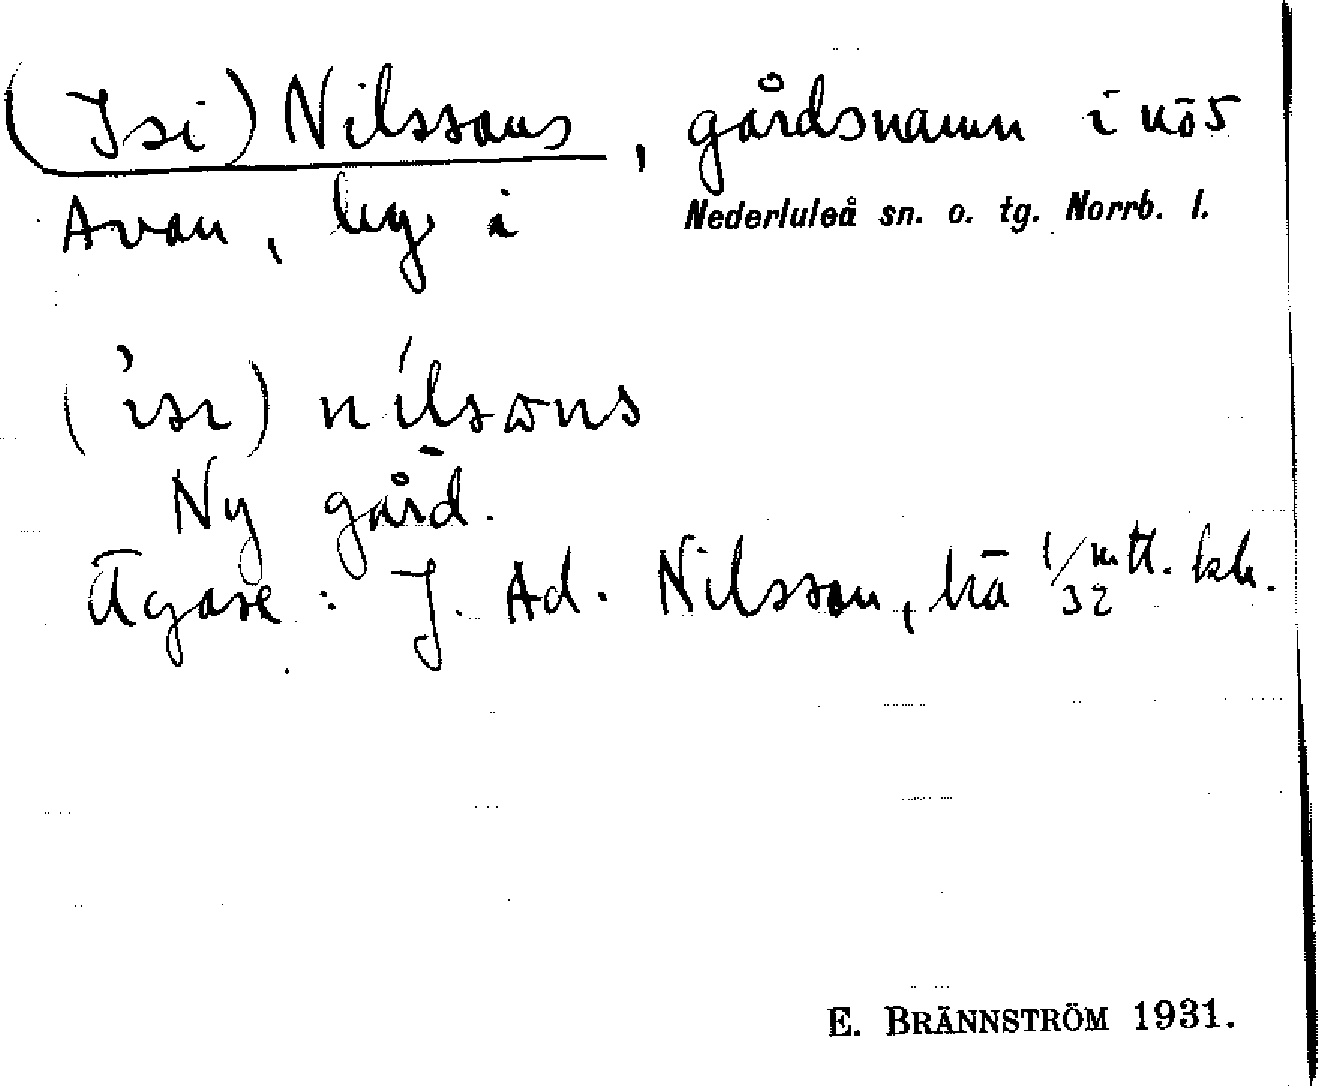 (Isi) Nilssons, gårdsnamn i nö5
Avan, by i Nederluleå sn. o. tg. Norrb. l.
(isı) nílsɷns
Ny gård.
Ägare: J. Ad. Nilsson, hä 1/32 mtl. kh.
E. BRÄNNSTRÖM 1931.